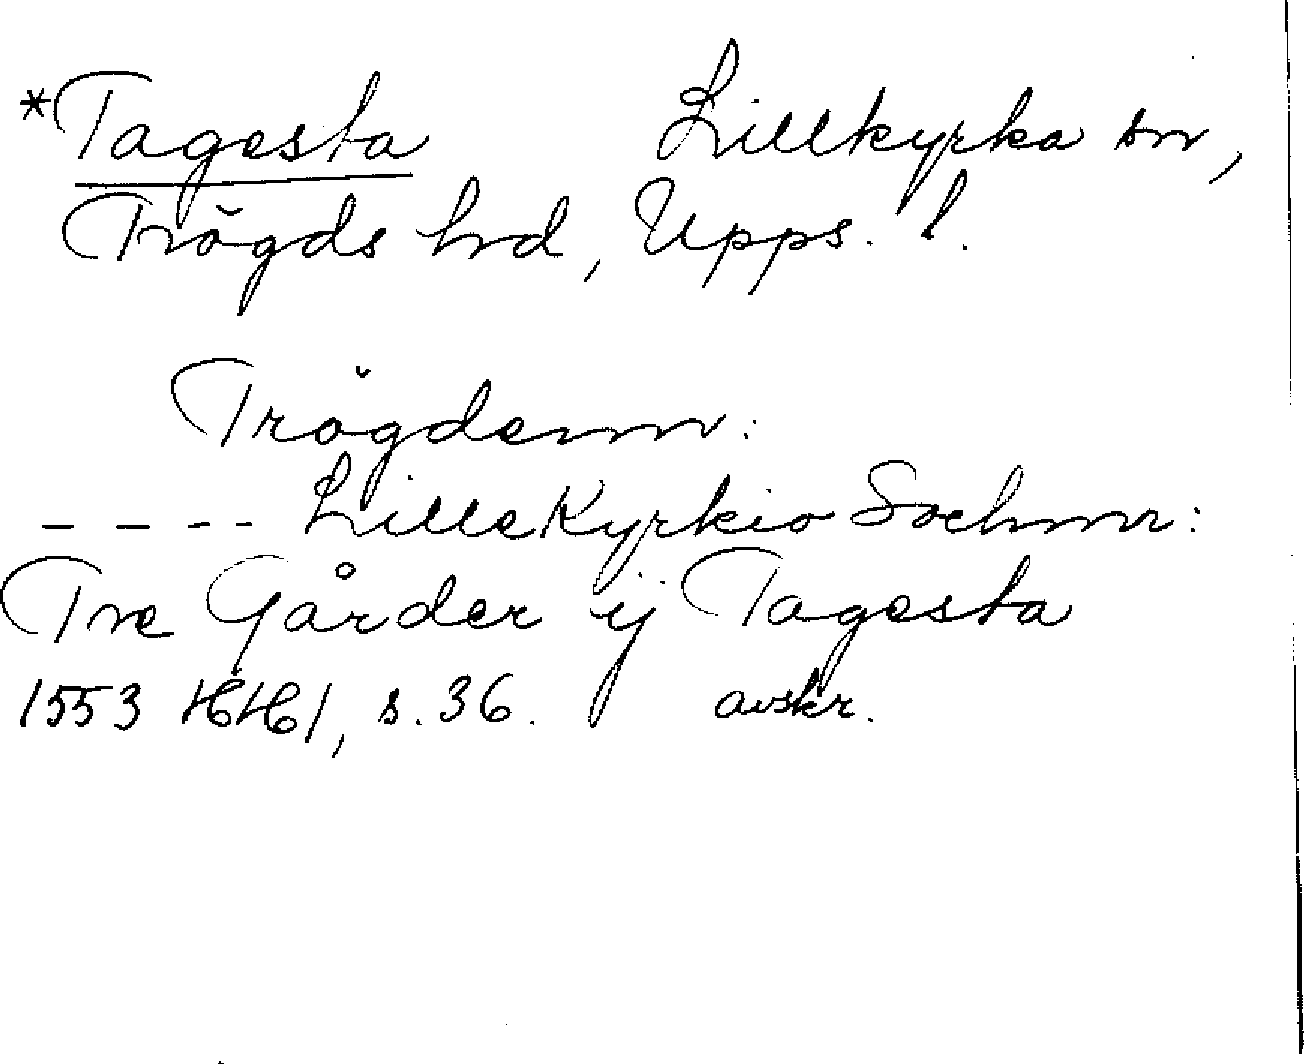 *Tagesta Lillkyrka sn,
Trögds hrd, Upps. l.
Trögdenn:
- - - - LilleKyrkio Sochnn:
Tre Gårder ij Tagesta
1553 HH1, s. 36. avskr.